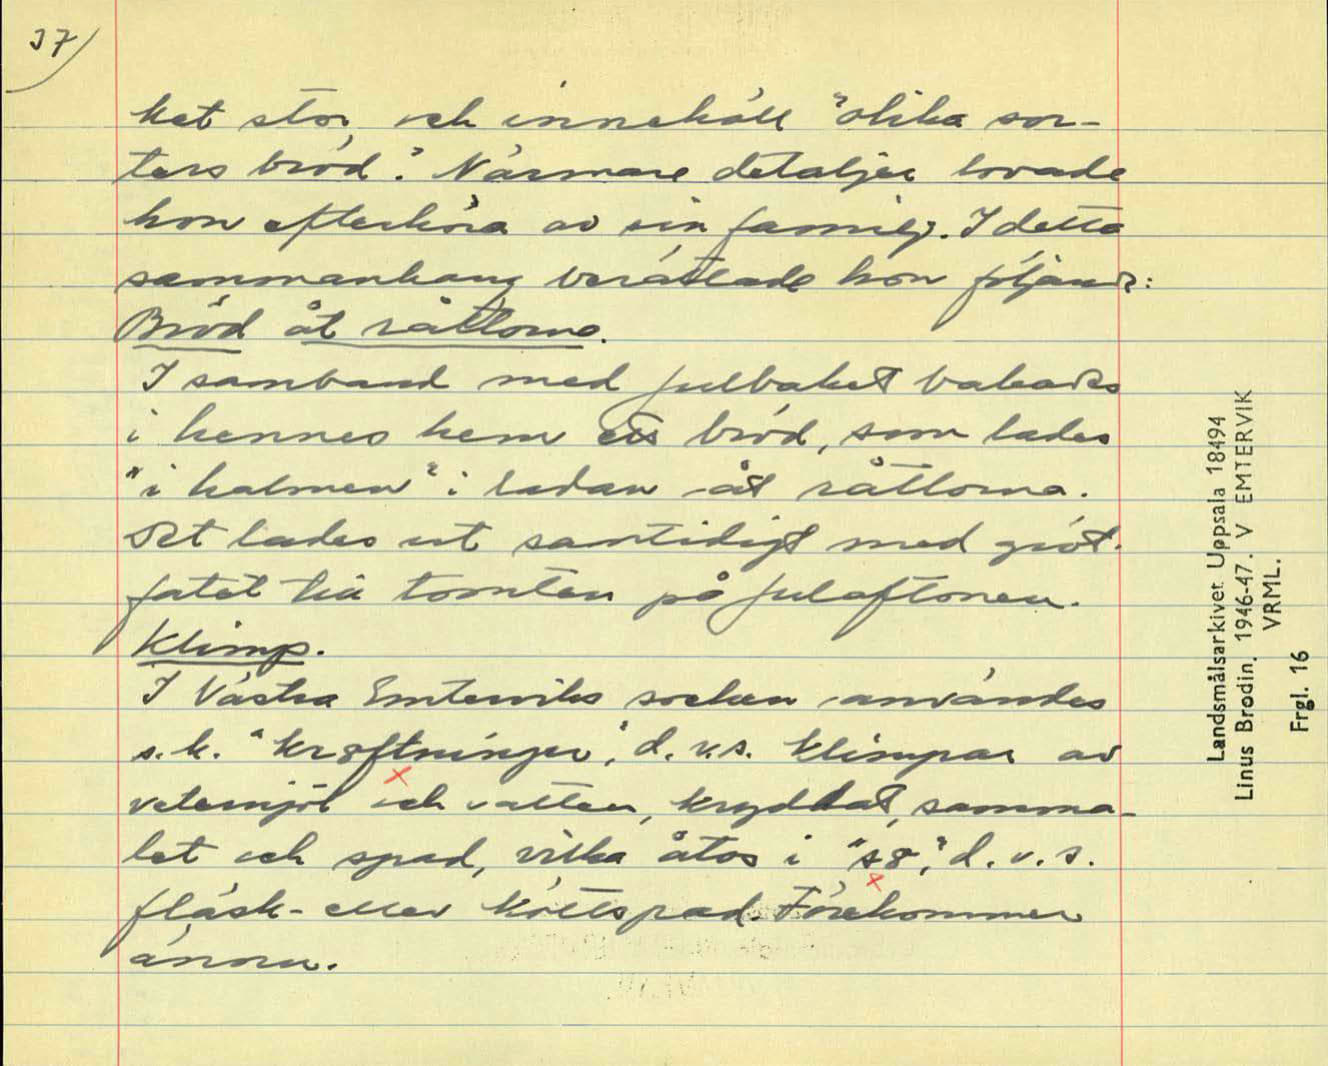 37)
ket stor, och innehåll "olika sor-
ters bröd". Närmare detaljer lovade
hon efterhöra av sin familj. I detta
sammanhang berättade hon följande:
Bröd åt råttorna.
I samband med julbaket bakades
i hennes hem ett bröd, som lades
"i halmen" i ladan åt råttorna.
Det lades ut samtidigt med gröt-
fatet till tomten på julaftonen.
Klimp.
I Västra Emterviks socken användes
s.k. "krøftninger", d.v.s. klimpar av
vetemjöl och vatten, kryddat,
let och spad, vilka åtos i "sø", d.v.s.
fläsk- eller köttspad. Förekommer
ännu.
Landsmålsarkivet Uppsala 18494
Linus Brodin. 1946-47. V EMTERVIK
VRML.
Frgl. 16